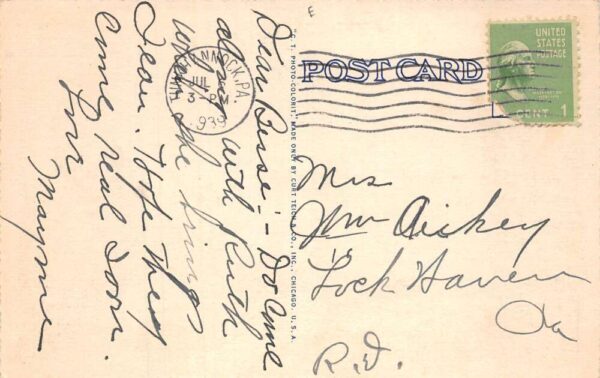 Dear Bessé:- Do come
along with Ruth
when she brings
Jean. Hope they
come real soon.
Love
Mayme
"C.T. PHOTO-COLORIT" MADE ONLY BY CURT TEICH & CO., INC., CHICAGO, U.S.A.
E
POST CARD
TUNKHANNOCK, PA.
JUL
3-PM
1939
UNITED
STATES
POSTAGE
CENT 1
Mrs
Wm Aickey
Lock Haven
Pa
R.D.